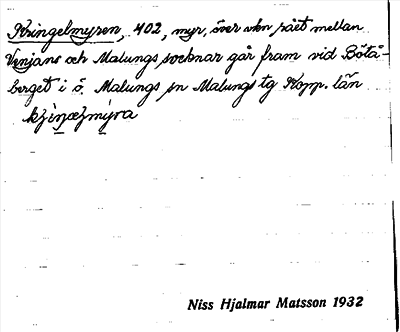 Kringelmyren, 402, myr, över vkn rået mellan
Venjans och Malungs socknar går fram vid Bötå-
berget i ö. Malungs sn Malungs tg Kopp. län
Niss Hjalmar Matsson 1932